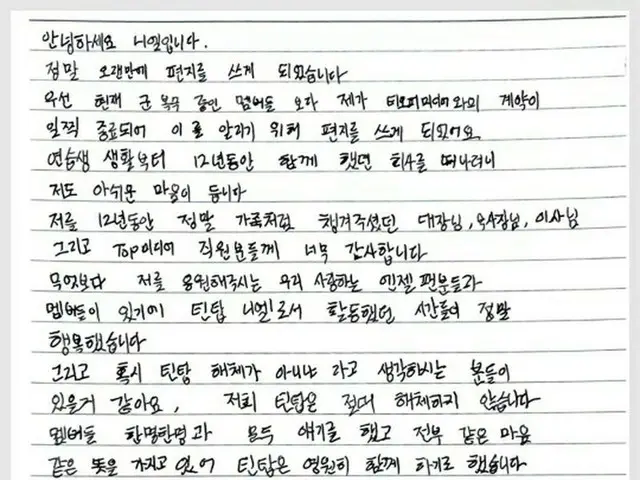 안녕하세요 니엘입니다.
정말 오랜만에 편지를 쓰게 되었습니다
우선 현재 군 복무 중인 멤버들 보다 제가 티오피미디어와의 계약이
일찍 종료되어 이를 알리기 위해 편지를 쓰게 되었어요
연습생 생활부터 12년동안 함께 했던 회사를 떠나려니
저도 아쉬운 마음이 듭니다
저를 12년동안 정말 가족처럼 챙겨주셨던 대장님, 우사장님, 이사님
그리고 Top미디어 직원분들께 너무 감사합니다
무엇보다 저를 응원해주시는 우리 사랑하는 엔젤 팬분들과
멤버들이 있기에 틴탑 니엘로서 활동했던 시간들이 정말
행복했습니다
그리고 혹시 틴탑 해체가 아니냐 라고 생각하시는 분들이
있을거 같아요, 저희 틴탑은 절대 해체하지 않습니다
멤버들 한명한명과 모두 얘기를 했고 전부 같은 마음
같은 뜻을 가지고 있어 틴탑은 영원히 함께 하기로 했습니다